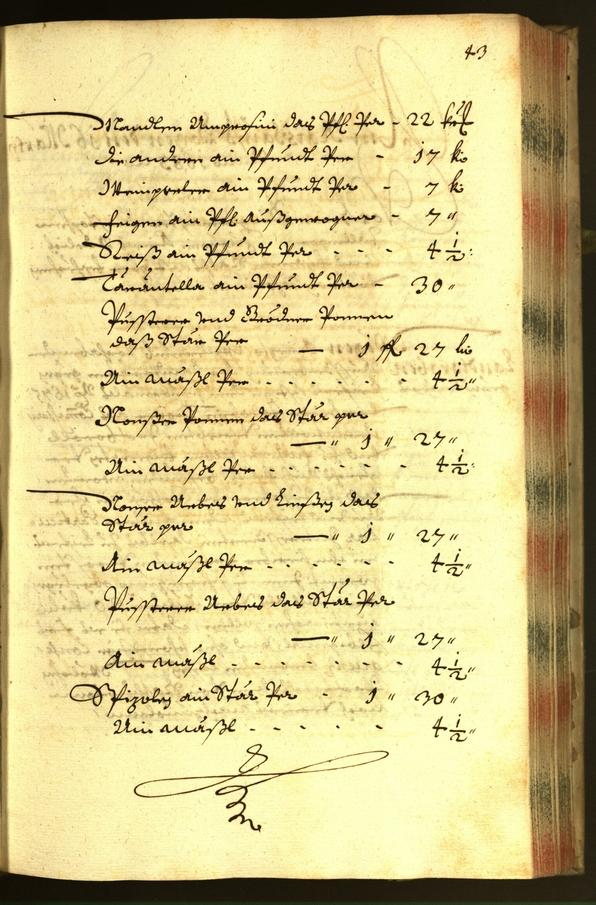 43
Mandlen Ambrosini das Pfl. Per - 22 kr
die andern ain Pfundt Per - 17 k
Weinperlen ain Pfundt Per - 7 k
Feigen ain Pfl. Außgewogner - 7 "
Reiß ain Pfundt Per - - - 4 1/2 :
Tarantella ain Pfundt Per - 30 "
Pusstrer vnd Pondten
daß Stär Per — 1 fl 27 kr
Ain mäßl Per - - - - - - 4 1/2 "
Ponnen das Stär per
— " 1 " 27 "
Ain mäßl Per - - - - - - 4 1/2 :
Arbes vnd Linßen das
Stär per — " 1 " 27 "
Ain mäßl Per - - - - - - 4 1/2 "
Pusstrer Arbes das Stär Per
— " 1 " 27 "
Ain mäßl - - - - - - 4 1/2 "
ain Stär Per - 1 " 30 "
Ain mäßl - - - - - 4 1/2 "